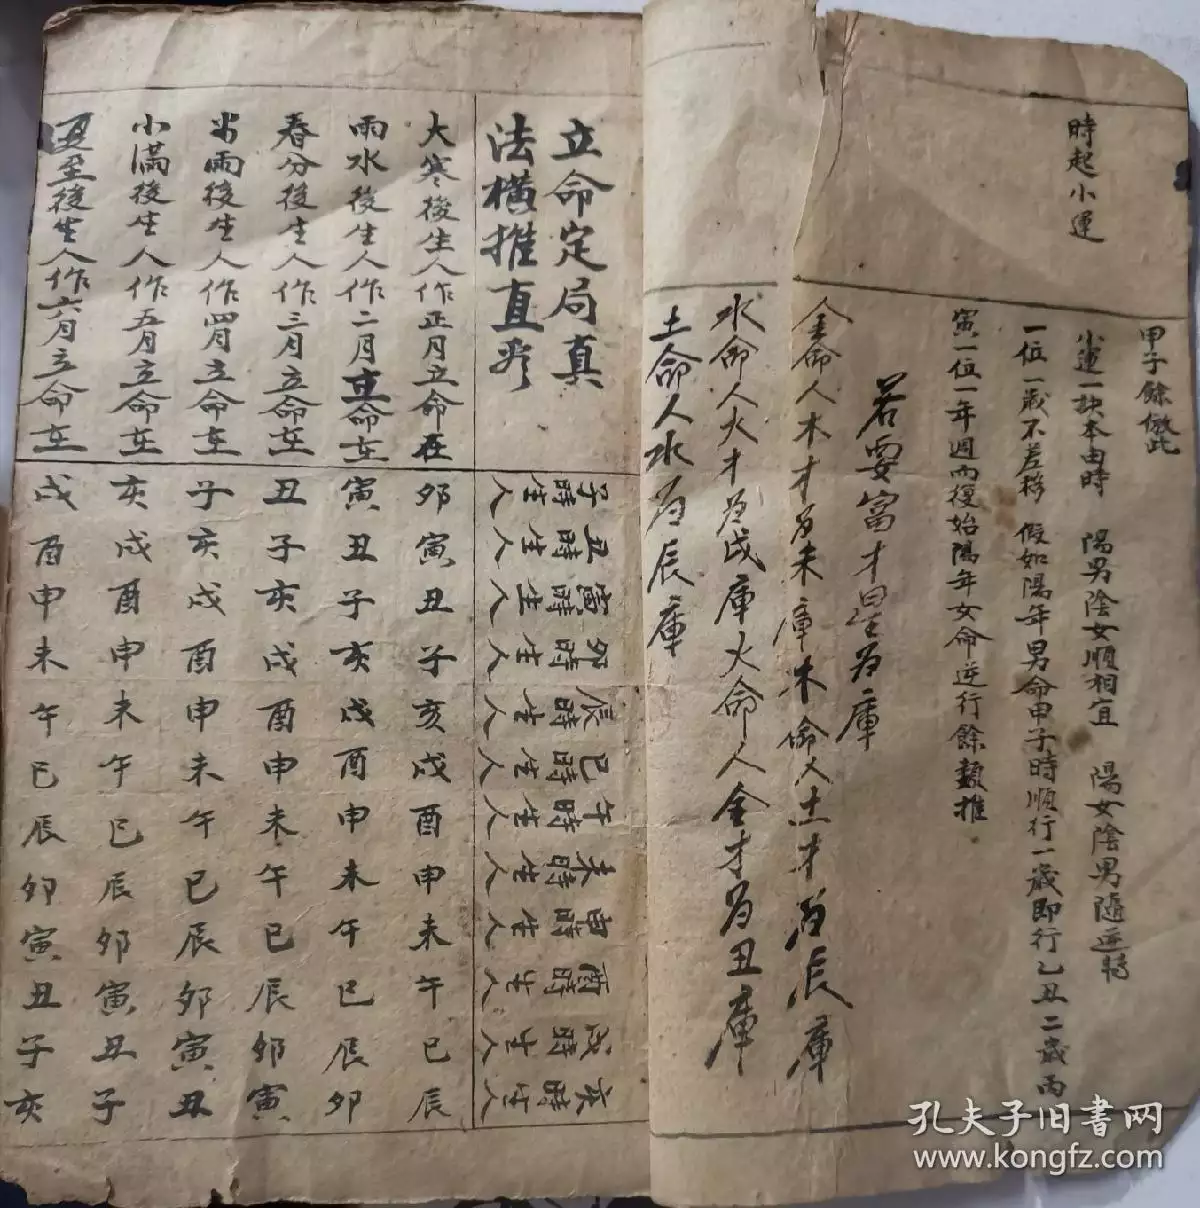 時起小運
甲子餘倣此
小運一訣本由時 陽男陰女順相宜 陽女陰男隨逆轉
一位一歲不差移 假如陽年男命甲子時順行一歲即行乙丑二歲丙
寅一位一年週而復始陽年女命逆行餘類推
若要富才星為庫
金命人木才为未庫木命人土才为辰庫
水命人火才為戌庫火命人金才为丑庫
土命人水为辰庫
立命定局真
法橫推直看
子時生人
丑時生人
寅時生人
卯時生人
辰時生人
巳時生人
午時生人
未時生人
申時生人
酉時生人
戌時生人
亥時生人
大寒後生人作正月立命在 卯寅丑子亥戌酉申未午巳辰
雨水後生人作二月立命在 寅丑子亥戌酉申未午巳辰卯
春分後生人作三月立命在 丑子亥戌酉申未午巳辰卯寅
谷雨後生人作四月立命在 子亥戌酉申未午巳辰卯寅丑
小滿後生人作五月立命在 亥戌酉申未午巳辰卯寅丑子
夏至後生人作六月立命在 戌酉申未午巳辰卯寅丑子亥
孔夫子旧书网
www.kongfz.com